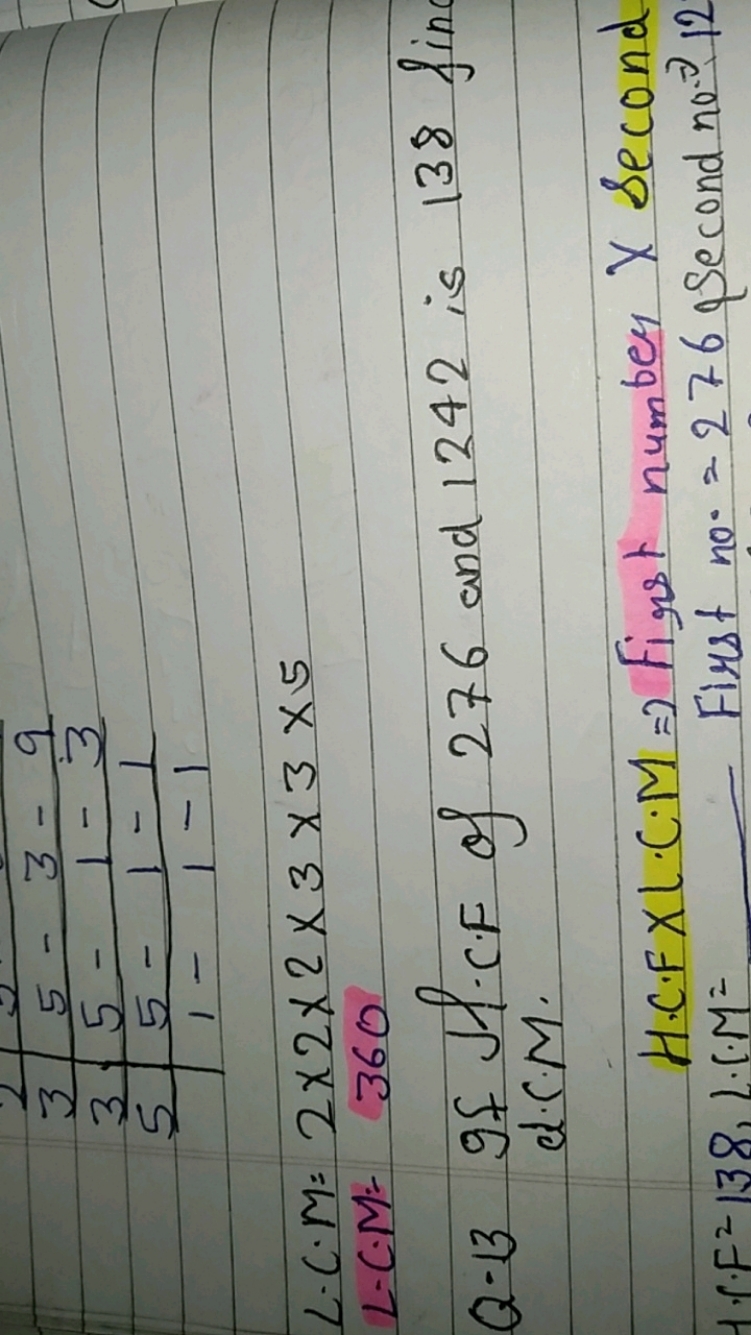 3 5 - 3 - 9
3 5 - 1 - 3
5 5 - 1 - 1
1 - 1 - 1
L.C.M = 2×2×2×3×3×5
L.C.M = 360
Q-13 If H.C.F of 276 and 1242 is 138 find
L.C.M.
H.C.F × L.C.M => First number × Second
H.C.F = 138, L.C.M = First no. = 276 & Second no. => 12